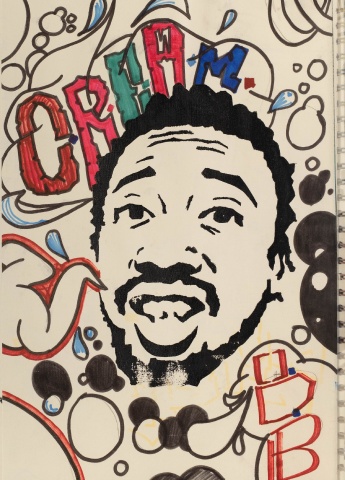 C.R.E.A.M.
O.D.B